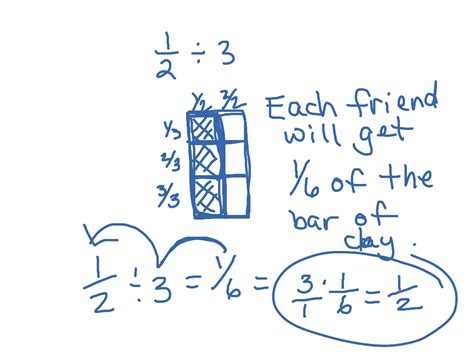 1/2 ÷ 3
1/2 2/2
1/3
2/3
3/3
Each friend
will get
1/6 of the
bar of
clay.
1/2 ÷ 3 = 1/6 = 3/1 · 1/6 = 1/2